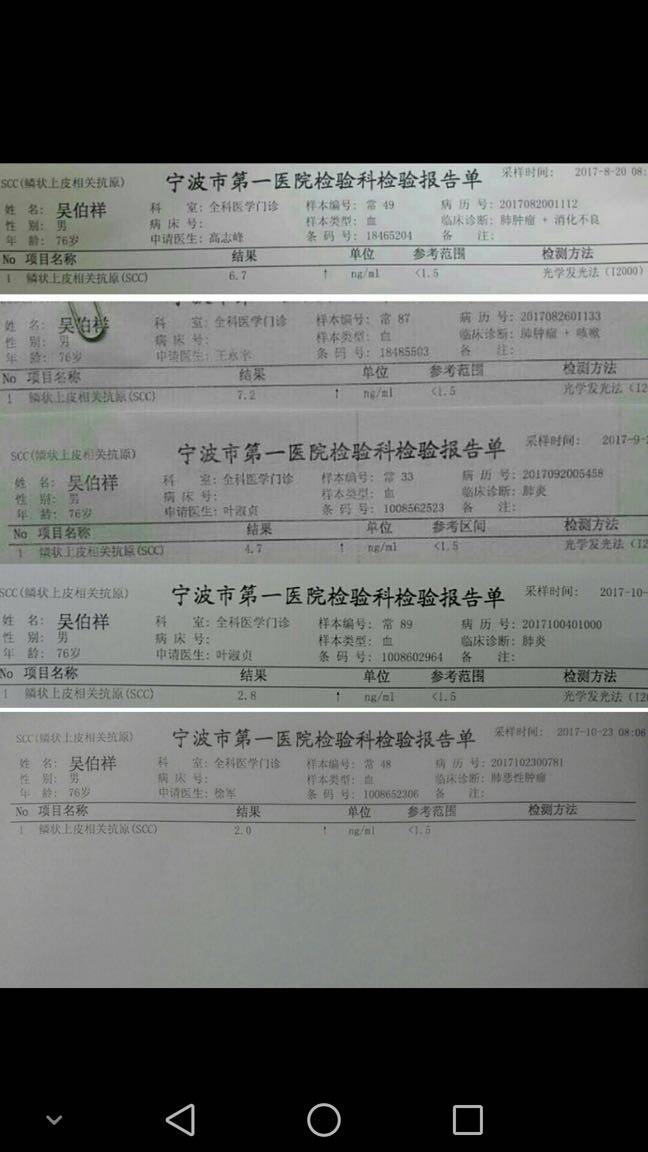 SCC(鳞状上皮相关抗原) 宁波市第一医院检验科检验报告单 采样时间: 2017-8-20 08:
姓 名: 吴伯祥 科 室: 全科医学门诊 样本编号: 常 49 病 历 号: 2017082001112
性 别: 男 病 床 号: 样本类型: 血 临床诊断: 肺肿瘤 + 消化不良
年 龄: 76岁 申请医生: 高志峰 条 码 号: 18465204 备 注:
No 项目名称 结果 单位 参考范围 检测方法
1 鳞状上皮相关抗原(SCC) 6.7 ↑ ng/ml <1.5 光学发光法(I2000)
姓 名: 吴伯祥 科 室: 全科医学门诊 样本编号: 常 87 病 历 号: 2017082601133
性 别: 男 病 床 号: 样本类型: 血 临床诊断: 肺肿瘤 + 咳嗽
年 龄: 76岁 申请医生: 条 码 号: 18485503 备 注:
No 项目名称 结果 单位 参考范围 检测方法
1 鳞状上皮相关抗原(SCC) 7.2 ↑ ng/ml <1.5 光学发光法(I2
SCC(鳞状上皮相关抗原) 宁波市第一医院检验科检验报告单 采样时间: 2017-9-2
姓 名: 吴伯祥 科 室: 全科医学门诊 样本编号: 常 33 病 历 号: 2017092005458
性 别: 男 病 床 号: 样本类型: 血 临床诊断: 肺炎
年 龄: 76岁 申请医生: 叶淑贞 条 码 号: 1008562523 备 注:
No 项目名称 结果 单位 参考区间 检测方法
1 鳞状上皮相关抗原(SCC) 4.7 ↑ ng/ml <1.5 光学发光法(I2
SCC(鳞状上皮相关抗原) 宁波市第一医院检验科检验报告单 采样时间: 2017-10-
姓 名: 吴伯祥 科 室: 全科医学门诊 样本编号: 常 89 病 历 号: 2017100401000
性 别: 男 病 床 号: 样本类型: 血 临床诊断: 肺炎
年 龄: 76岁 申请医生: 叶淑贞 条 码 号: 1008602964 备 注:
No 项目名称 结果 单位 参考范围 检测方法
1 鳞状上皮相关抗原(SCC) 2.8 ↑ ng/ml <1.5 光学发光法(I20
SCC(鳞状上皮相关抗原) 宁波市第一医院检验科检验报告单 采样时间: 2017-10-23 08:06
姓 名: 吴伯祥 科 室: 全科医学门诊 样本编号: 常 48 病 历 号: 2017102300781
性 别: 男 病 床 号: 样本类型: 血 临床诊断: 肺恶性肿瘤
年 龄: 76岁 申请医生: 徐军 条 码 号: 1008652306 备 注:
No 项目名称 结果 单位 参考范围 检测方法
1 鳞状上皮相关抗原(SCC) 2.0 ↑ ng/ml <1.5